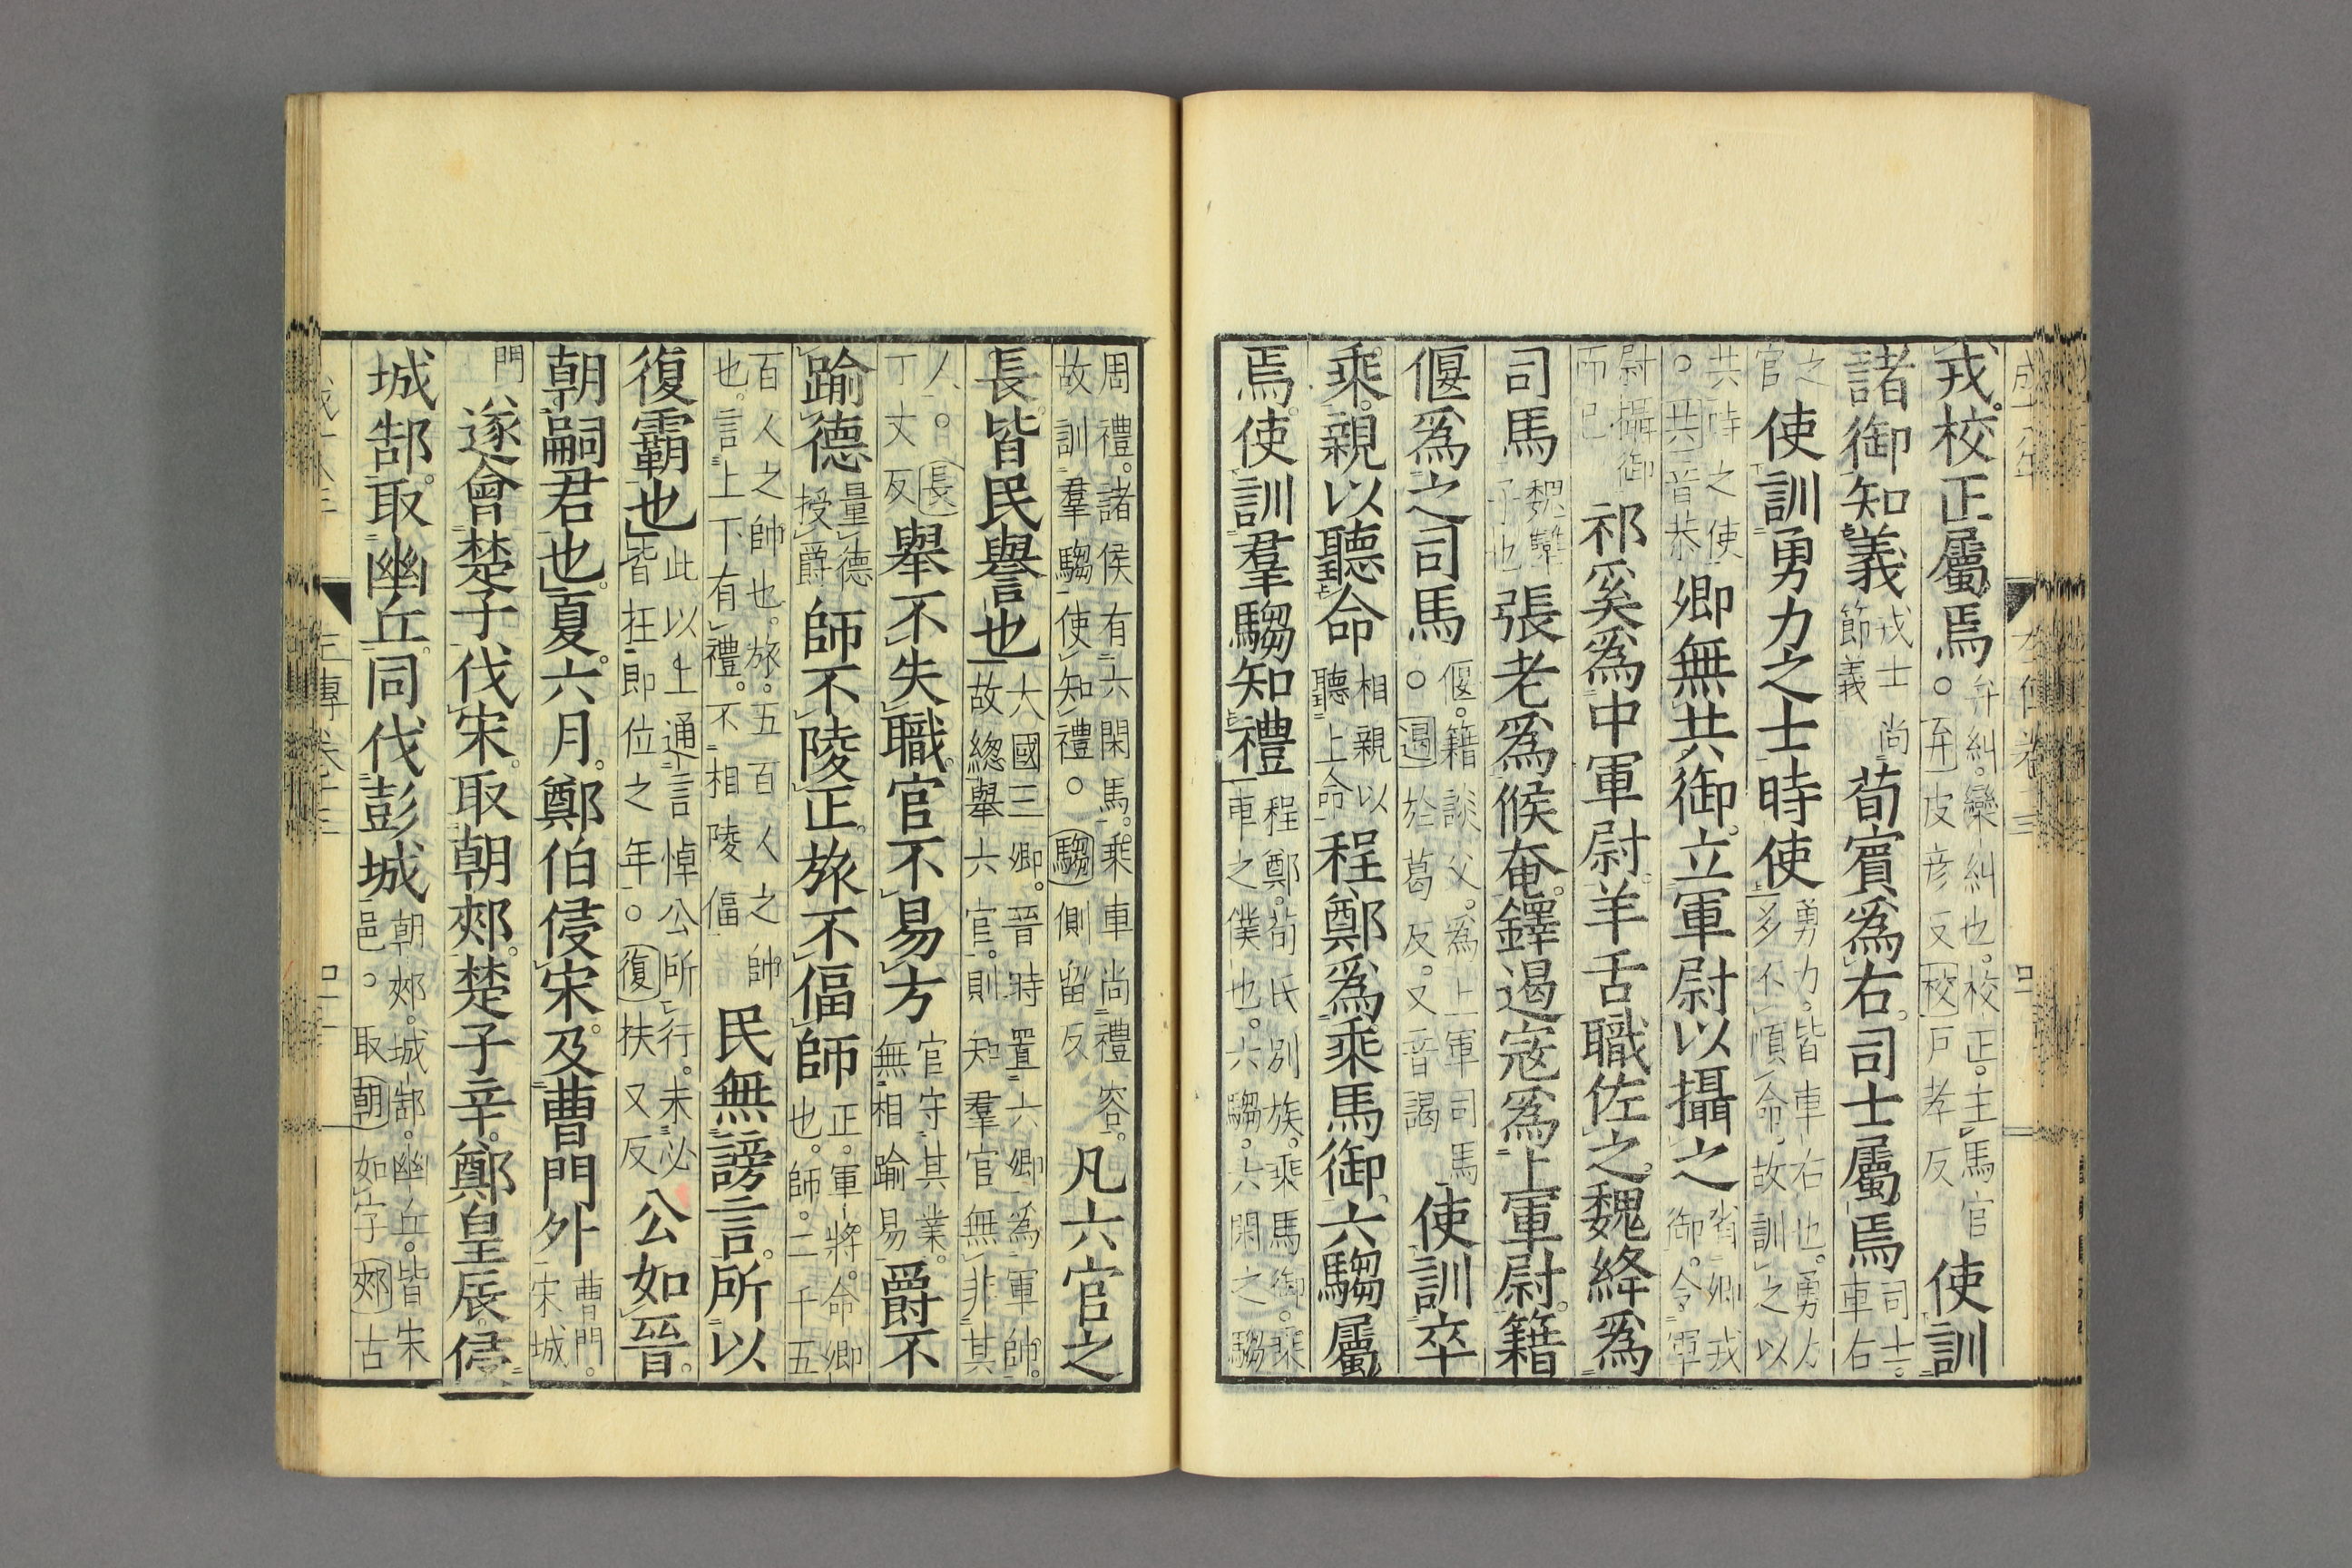 戎。校正屬焉。弁糾。欒糾也。校正。主馬官○弁皮彦反校戸孝反使訓
諸御知義戎士尚節義荀賓爲右。司士屬焉司士。車右
之官使訓勇力之士時使勇力。皆車右也。勇力多不順命。故訓之以
共時之使○共音恭卿無共御。立軍尉以攝之省卿戎御。令軍
尉攝御而已祁奚爲中軍尉。羊舌職佐之。魏絳爲
司馬魏犨子也張老爲候奄。鐸遏寇爲上軍尉。籍
偃爲之司馬偃。籍談父。爲上軍司馬○遏於葛反。又音謁使訓卒
乘。親以聽命相親以聽上命程鄭爲乘馬御。六騶屬
焉。使訓羣騶知禮程鄭。荀氏別族。乘馬御。乘車之僕也。六騶。六閑之騶
周禮。諸侯有六閑馬。乘車尚禮容。故訓羣騶使知禮。○騶側留反凡六官之
長。皆民譽也大國三卿。晉時置六卿爲軍帥。故緫舉六官。則知羣官無非其
人。○長丁丈反舉不失職。官不易方官守其業。無相踰易爵不
踰德量德授爵師不陵正。旅不偪師正。軍將。命卿也。師。二千五
百人之帥也。旅。五百人之帥也。言上下有禮。不相陵偪民無謗言。所以
復霸也此以上通言悼公所行。未必皆在即位之年。○復扶又反公如晉。
朝嗣君也。夏六月。鄭伯侵宋。及曹門外曹門。宋城
門遂會楚子伐宋。取朝郟。楚子辛。鄭皇辰。侵
城郜。取幽丘。同伐彭城朝郟。城郜。幽丘。皆宋邑。○取朝如字郟古